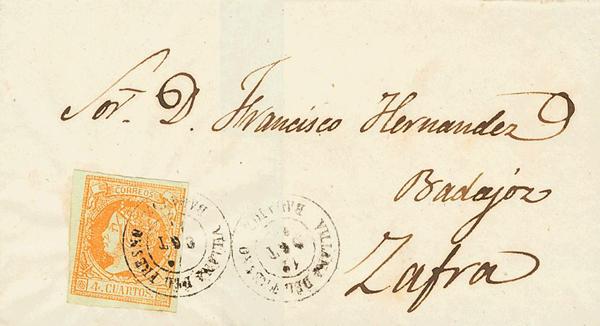 Sor. D. Francisco Hernandez
Badajoz
Zafra
CORREOS
4. CUARTOS.
VILLANA DEL FRESNO
BADAJOZ
VILLANA DEL FRESNO
BADAJOZ